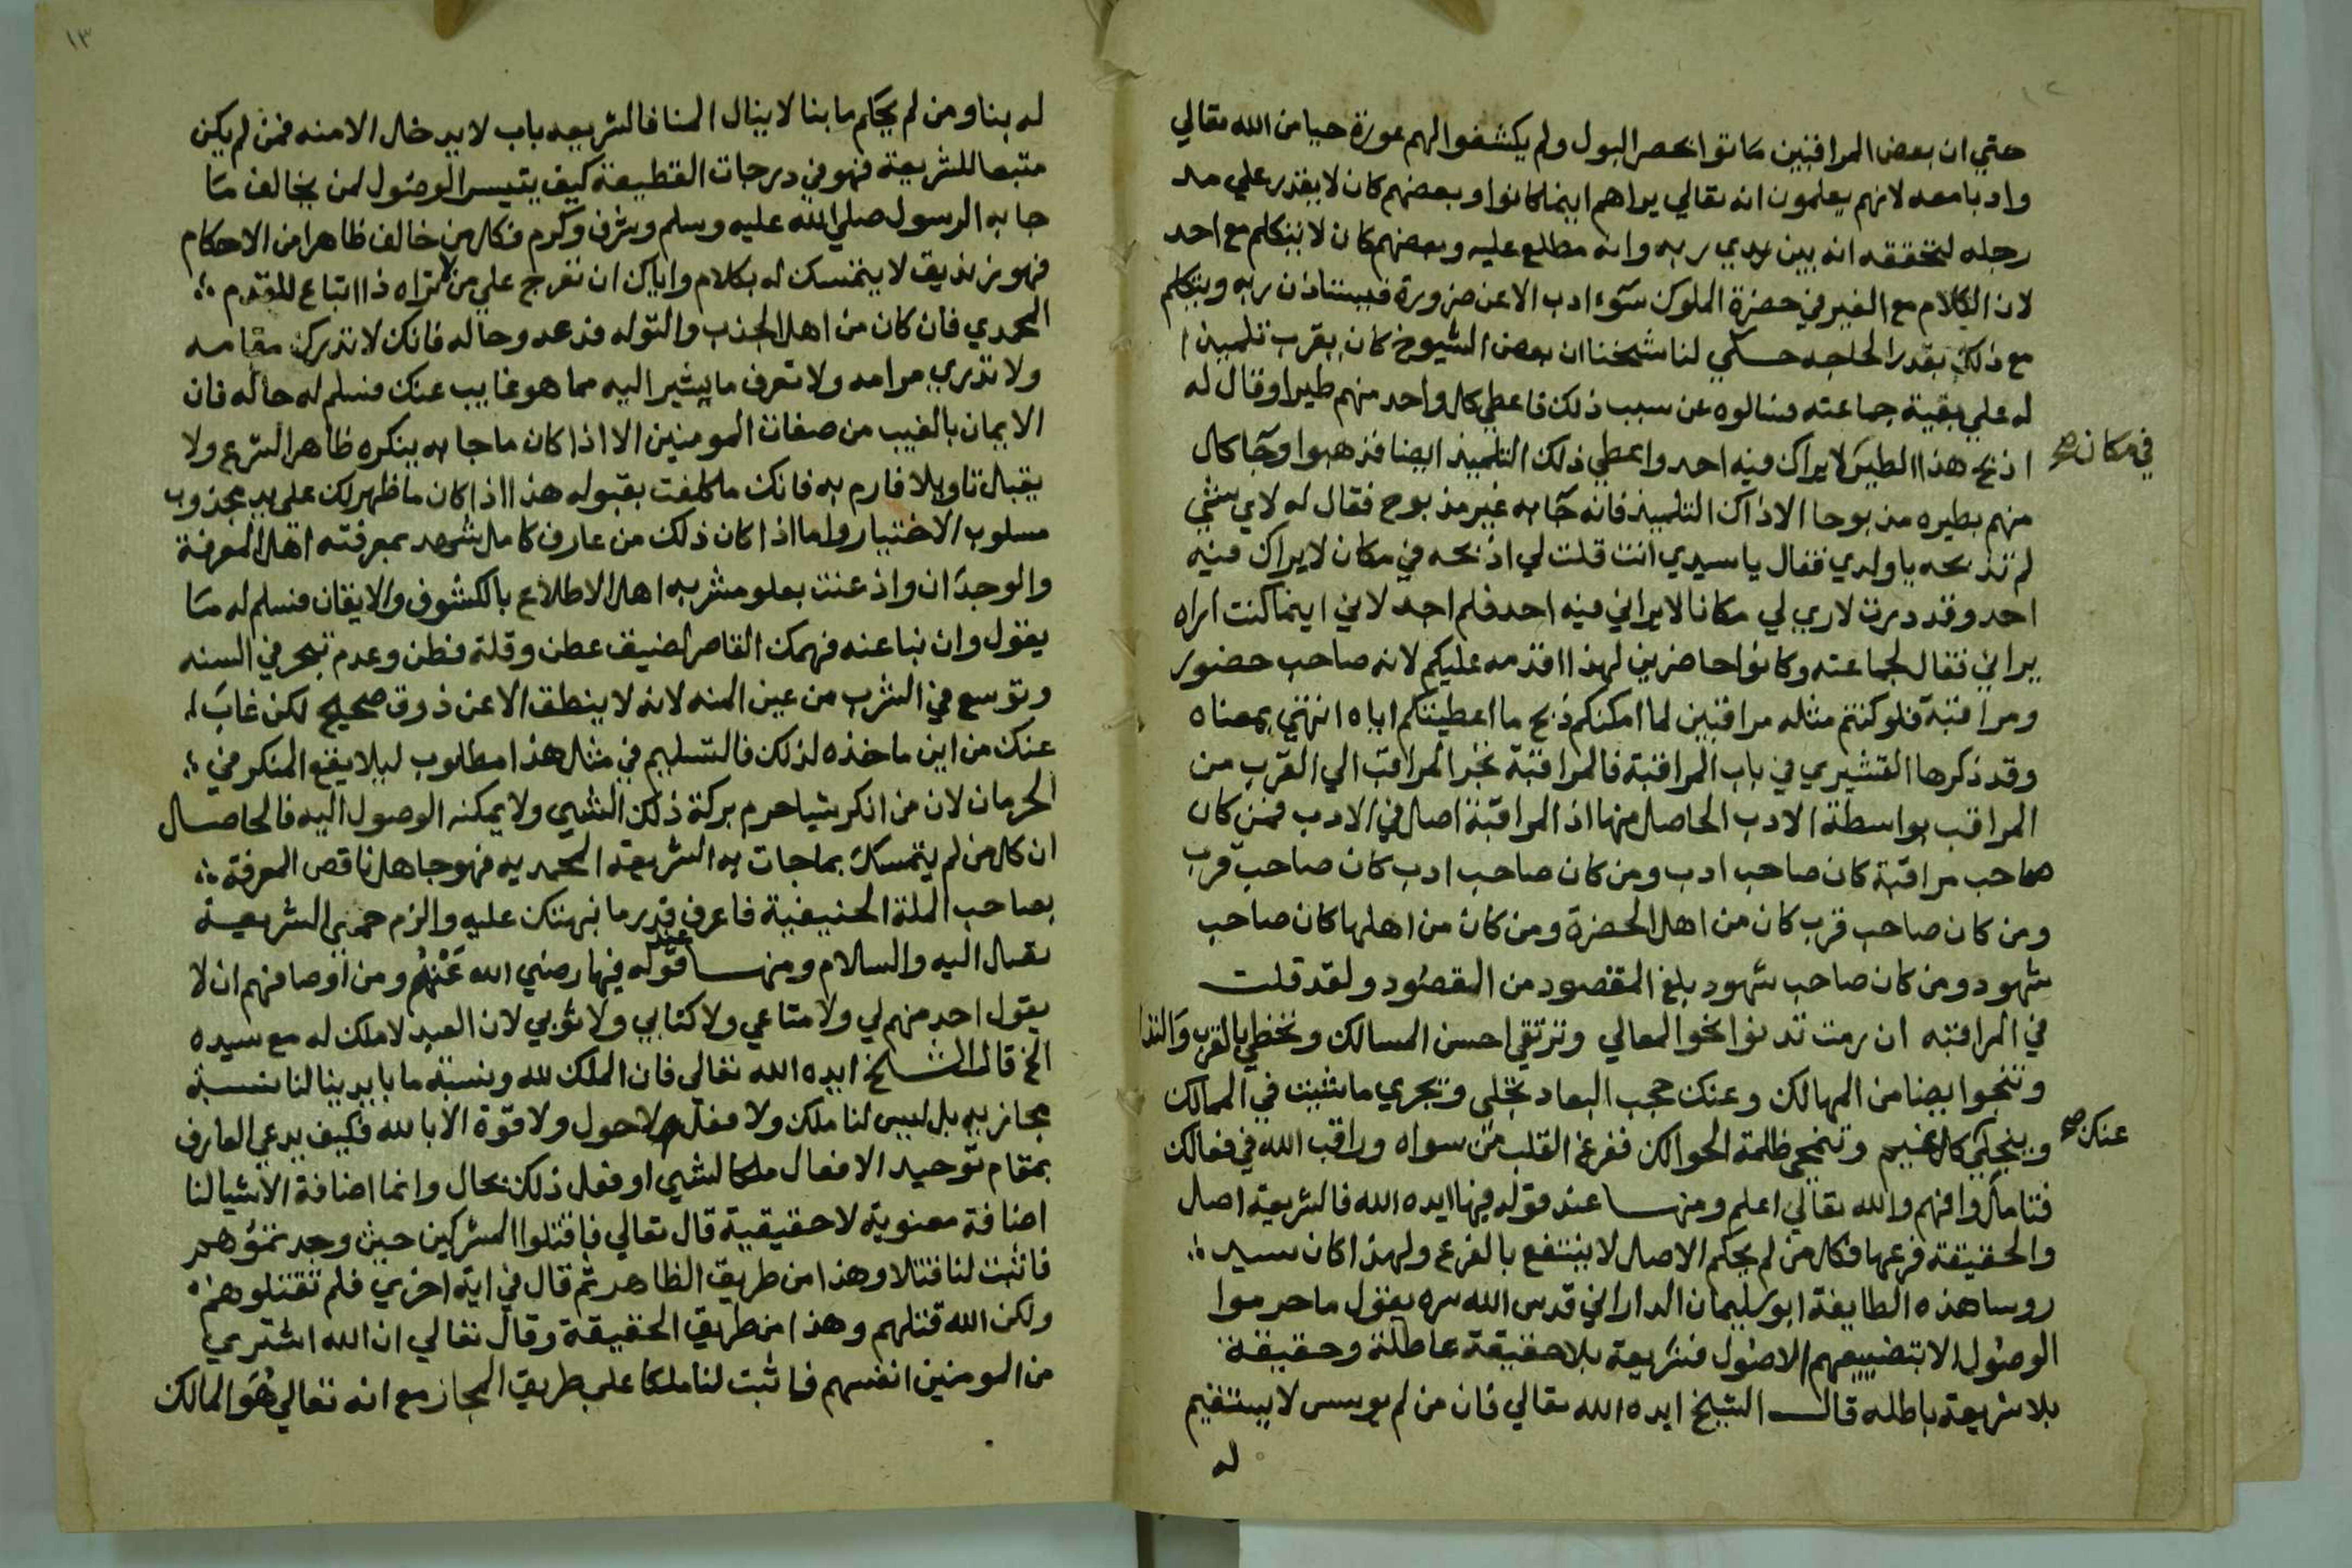 ١٢
حتي ان بعض المراقبين ماتوا بحصر البول ولم يكشفوا لهم عورة حيا من الله تعالي
وادبا معه لانهم يعلمون انه تعالي يراهم اينما كانوا وبعضهم كان لا يقدر علي مد
رجله لتحققه انه بين يدي ربه وانه مطلع عليه وبعضهم كان لا يتكلم مع احد
لان الكلام مع الغير في حضرة الملوك سوء ادب الا عن ضرورة فيستاذن ربه ويتكلم
مع ذلك بقدر الحاجه حكي لنا شيخنا ان بعض الشيوخ كان يقرب تلميذا
له علي بقية جماعته فسالوه عن سبب ذلك فاعطي كل واحد منهم طيرا وقال له
اذبح هذا الطير لا يراك فيه احد واعطي ذلك التلميذ ايضا فذهبوا وجا كل
في مكان صح
منهم بطيره مذبوحا الا ذاك التلميذ فانه جا به غير مذبوح فقال له لاي شي
لم تذبحه يا ولدي فقال يا سيدي انت قلت لي اذبحه في مكان لا يراك فيه
احد وقد درت لاري لي مكانا لا يراني فيه احد فلم اجد لاني اينما كنت اراه
يراني فقال لجماعته وكانوا حاضرين لهذا اقدمه عليكم لانه صاحب حضور
ومراقبة فلو كنتم مثله مراقبين لما امكنكم ذبح ما اعطيتكم اياه انتهي بمعناه
وقد ذكرها القشيري في باب المراقبة فالمراقبة تجر المراقب الي القرب من
المراقب بواسطة الادب الحاصل منها اذ المراقبة اصل في الادب فمن كان
صاحب مراقبة كان صاحب ادب ومن كان صاحب ادب كان صاحب قرب
ومن كان صاحب قرب كان من اهل الحضرة ومن كان من اهلها كان صاحب
شهود ومن كان صاحب شهود بلغ المقصود من المقصود ولقد قلت
في المراقبه ان رمت تدنوا نحو المعالي وترتقي احسن المسالك وتحظي بالقرب والتدا
وتنجوا ايضا من المهالك وعنك حجب البعاد تجلي وتجري ما شيت في الممالك
وينجلي كل غيم وتنمحي ظلمة الحوالك ففرغ القلب من سواه وراقب الله في فعالك
عنك صح
فتامل وافهم والله تعالي اعلم ومنها عند قوله فيها ايده الله فالشريعة اصل
والحقيقة فرعها فكل من لم يحكم الاصل لا ينتفع بالفرع ولهذا كان سيد
روسا هذه الطايفة ابو سليمان الداراني قدس الله سره يقول ما حرموا
الوصول الا بتضييعهم الاصول فشريعة بلا حقيقة عاطلة وحقيقة
بلا شريعة باطله قال الشيخ ايده الله تعالي فان من لم يوسس لا يستقيم
له
١٣
له بنا ومن لم يحكم ما بنا لا ينال المنا فالشريعه باب لا يدخل الا منه فمن لم يكن
متبعا للشريعة فهو في درجات القطيعة كيف يتيسر الوصول لمن يخالف ما
جا به الرسول صلي الله عليه وسلم وشرف وكرم فكل من خالف ظاهرا من الاحكام
فهو زنديق لا يتمسك له بكلام واياك ان تعرج علي من لا تراه ذا اتباع للقدم
المحمدي فان كان من اهل الجذب والتوله فدعه وحاله فانك لا تدرك مقامه
ولا تدري مرامه ولا تعرف ما يشير اليه مما هو غايب عنك فسلم له حاله فان
الايمان بالغيب من صفات المومنين الا اذا كان ما جا به ينكره ظاهر الشرع ولا
يقبل تاويلا فارم به فانك ما كلفت بقبوله هذا اذا كان ما ظهر لك علي يد مجذوب
مسلوب الاختيار واما اذا كان ذلك من عارف كامل شهد بمعرفته اهل المعرفة
والوجدان واذعنت بعلو مشربه اهل الاطلاع بالكشوف والايقان فسلم له ما
يقول وان نبا عنه فهمك القاصر لضيق عطن وقلة فطن وعدم تبحر في السنه
وتوسع في الشرب من عين المنه لانه لا ينطق الا عن ذوق صحيح لكن غاب
عنك من اين ماخذه لذلك فالتسليم في مثل هذا مطلوب ليلا يقع المنكر في
الحرمان لان من انكر شيا حرم بركة ذلك الشي ولا يمكنه الوصول اليه فالحاصل
ان كل من لم يتمسك بما جات به الشريعة المحمديه فهو جاهل ناقص المعرفة
بصاحب الملة الحنيفية فاعرف قدر ما نبهتك عليه والزم حمي الشريعة
تصل اليه والسلام ومنها عند قوله فيها رضي الله عنهم ومن اوصافهم ان لا
يقول احد منهم لي ولا متاعي ولا كتابي ولا ثوبي لان العبد لا ملك له مع سيده
الخ قال الشيخ ايده الله تعالي فان الملك لله ونسبة ما بايدينا لنا نسبة
مجازيه بل ليس لنا ملك ولا فعل ولا حول ولا قوة الا بالله فكيف يدعي العارف
بمقام توحيد الافعال ملكا لشي او فعل ذلك بحال وانما اضافة الاشيا لنا
اضافة معنوية لا حقيقية قال تعالي فاقتلوا المشركين حيث وجدتموهم
فاثبت لنا قتلا وهذا من طريق الظاهر ثم قال في اية اخري فلم تقتلوهم
ولكن الله قتلهم وهذا من طريق الحقيقة وقال تعالي ان الله اشتري
من المومنين انفسهم فاثبت لنا ملكا علي طريق المجاز مع انه تعالي هو المالك